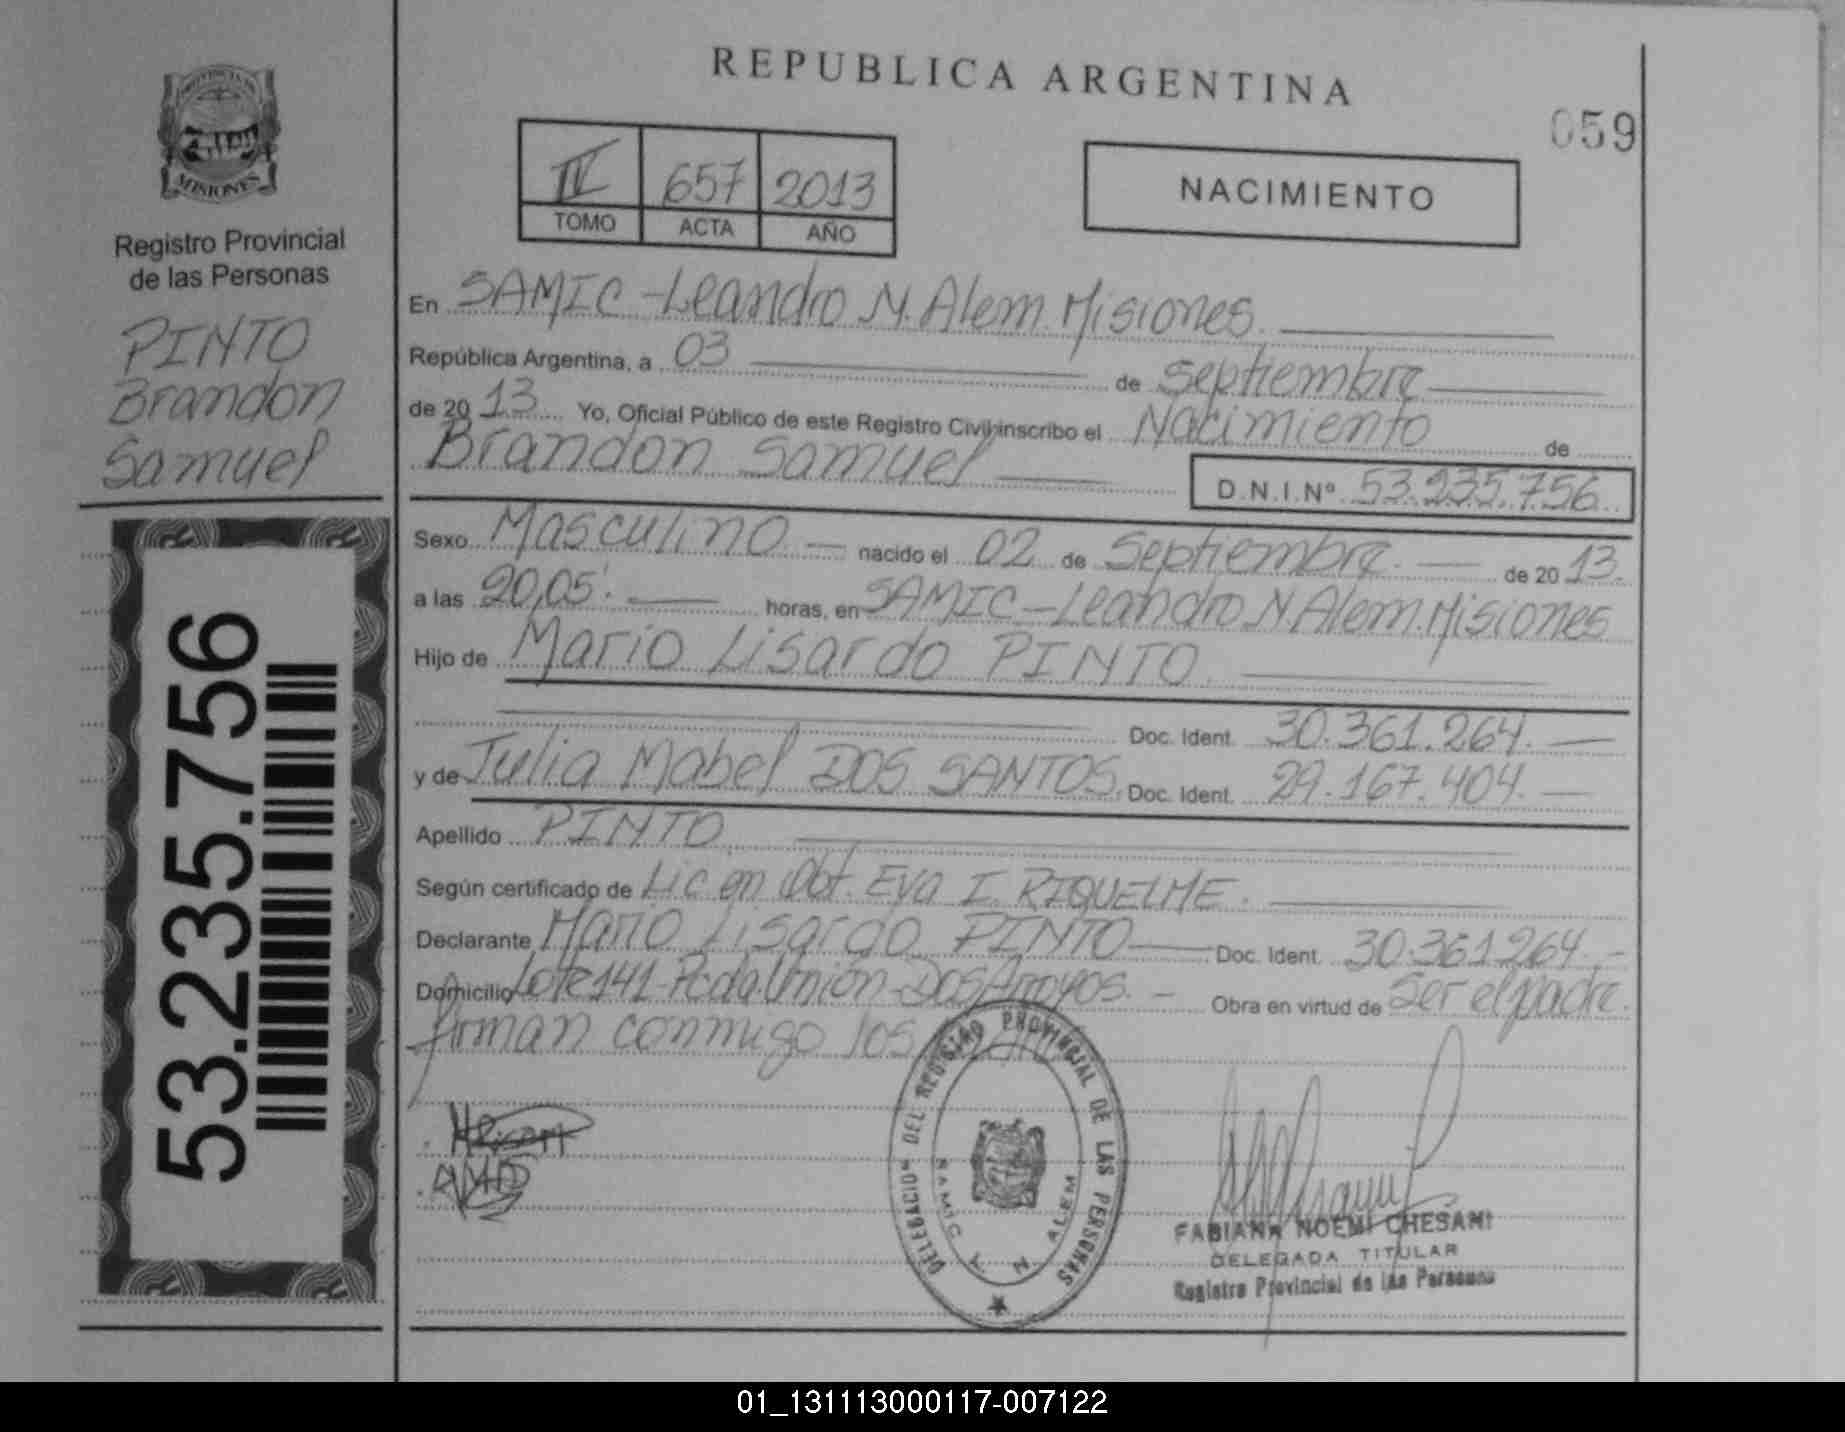 REPUBLICA ARGENTINA
059
PROVINCIA DE
MISIONES
Registro Provincial
de las Personas
PINTO
Brandon
Samuel
53.235.756
IV 657 2013
TOMO ACTA AÑO
NACIMIENTO
En SAMIC - Leandro N. Alem. Misiones.
República Argentina, a 03 de septiembre
de 20 13 Yo, Oficial Público de este Registro Civil inscribo el Nacimiento de
Brandon Samuel D.N.I.Nº 53.235.756
Sexo Masculino nacido el 02 de Septiembre. de 20 13.
a las 20,05'. horas, en SAMIC - Leandro N Alem. Misiones
Hijo de Mario Lisardo PINTO
Doc. Ident. 30.361.264.
y de Julia Mabel DOS SANTOS. Doc. Ident. 29.167.404.
Apellido PINTO
Según certificado de Lic. en Obt. Eva I. RIQUELME.
Declarante Mario Lisardo PINTO Doc. Ident. 30.361.264.-
Domicilio Lote 141 - Pcda. Unión - Dos Arroyos. - Obra en virtud de Ser el padre.
firman conmigo los
DELEGACION DEL REGISTRO PROVINCIAL DE LAS PERSONAS
SAMIC L. N. ALEM
FABIANA NOEMI CHESANI
DELEGADA TITULAR
Registro Provincial de las Personas
01_131113000117-007122